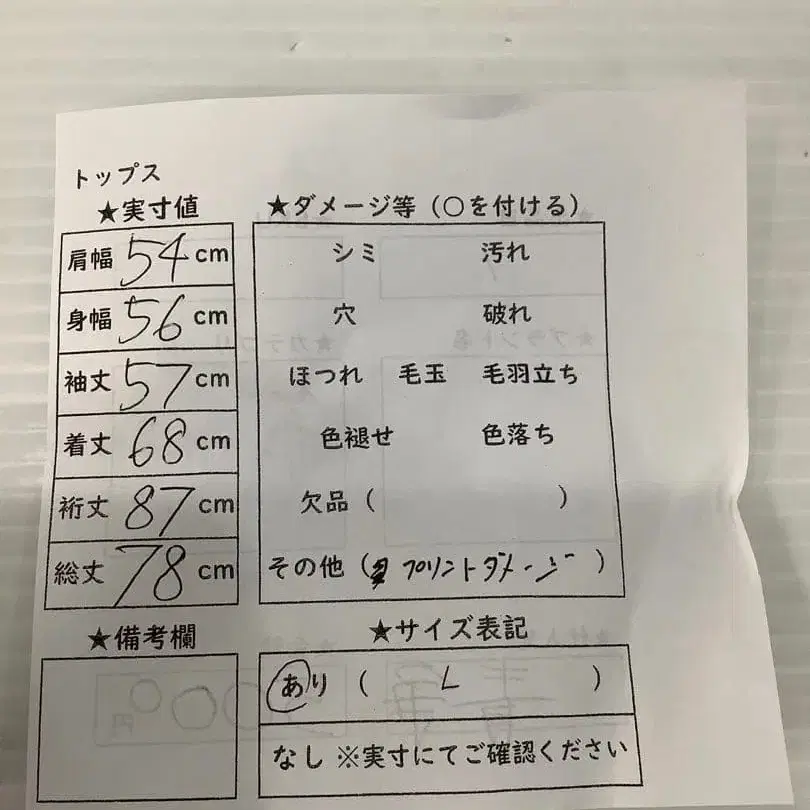 トップス
★実寸値
肩幅 54 cm
身幅 56 cm
袖丈 57 cm
着丈 68 cm
裄丈 87 cm
総丈 78 cm
★備考欄
★ダメージ等（○を付ける）
シミ 汚れ
穴 破れ
ほつれ 毛玉 毛羽立ち
色褪せ 色落ち
欠品（ ）
その他（プリントダメージ）
★サイズ表記
あり（ L ）
なし ※実寸にてご確認ください